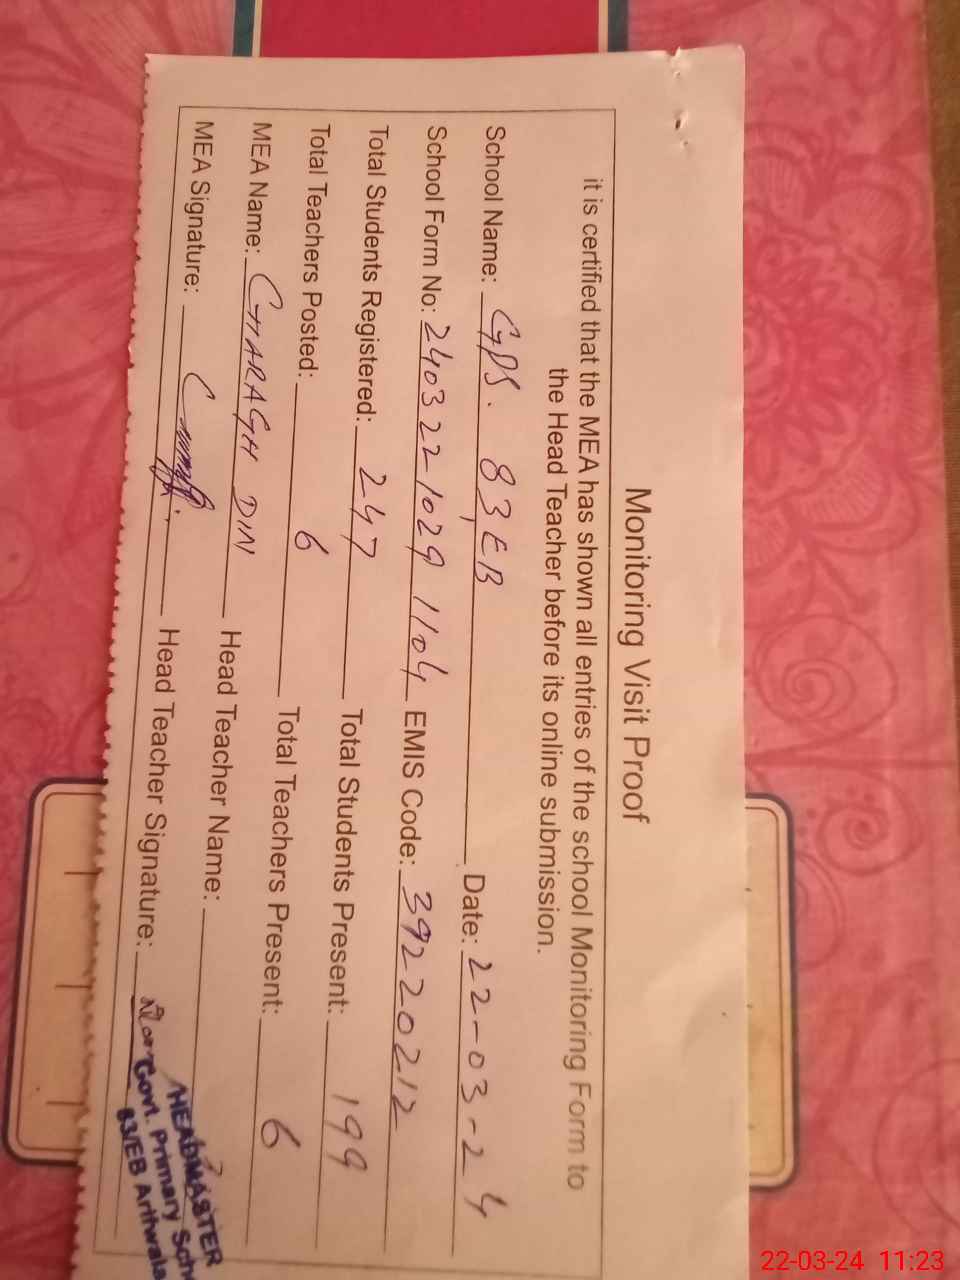 Monitoring Visit Proof
it is certified that the MEA has shown all entries of the school Monitoring Form to
the Head Teacher before its online submission.
School Name: GPS. 83/EB Date: 22-03-24
School Form No: 24032210291104 EMIS Code: 39220212
Total Students Registered: 247 Total Students Present: 199
Total Teachers Posted: 6 Total Teachers Present: 6
MEA Name: CHARAGH DIN Head Teacher Name:
MEA Signature: Head Teacher Signature:
HEADMASTER
Govt. Primary Sch
83/EB Arifwala
22-03-24 11:23